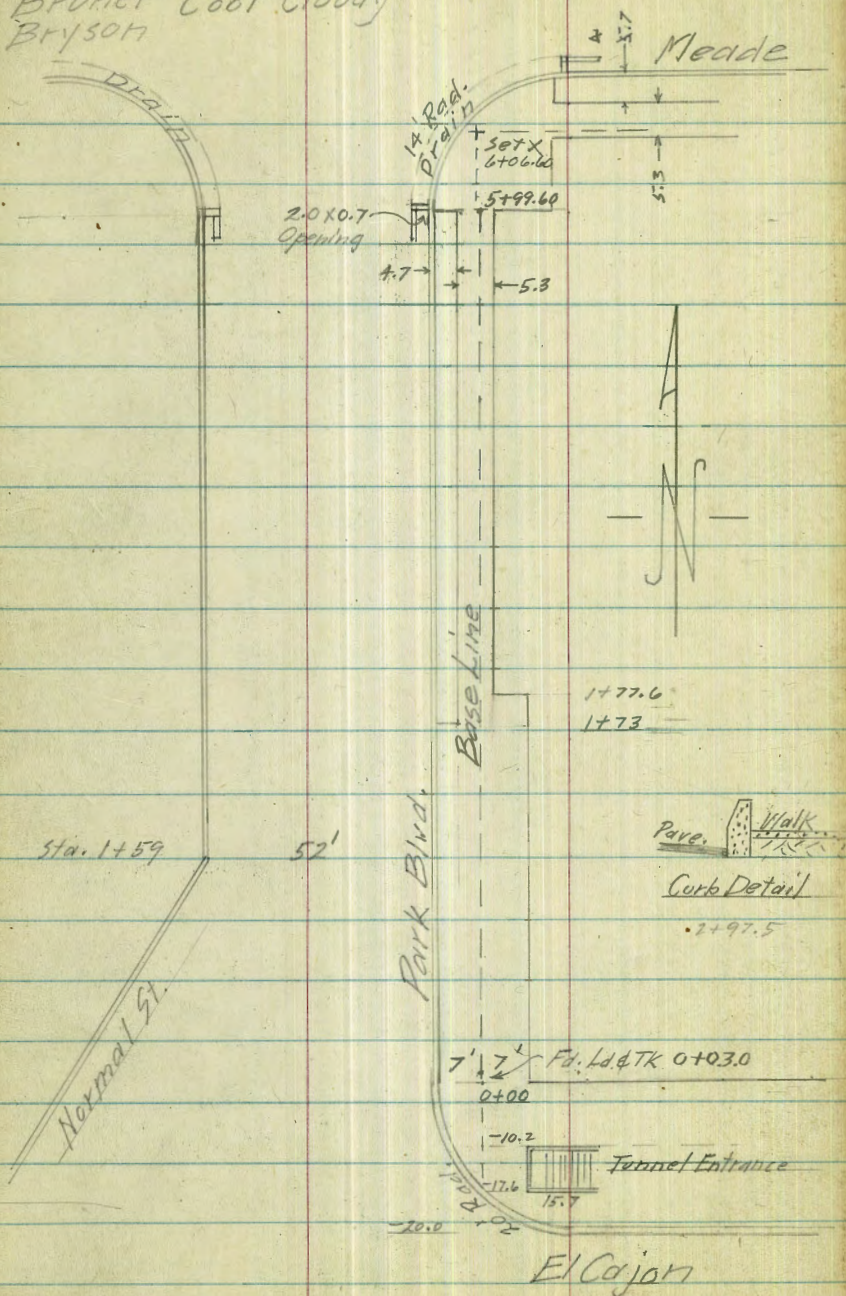 Bruner Cool Cloudy
Bryson
Meade
4
5.7
Drain
14' Rad.
Drain
Set X
6+06.60
5.3
5+99.60
2.0 X 0.7
Opening
4.7
5.3
N
Base Line
1+77.6
1+73
Sta. 1+59
52'
Park Blvd.
Pave.
Walk
Curb Detail
2+97.5
Normal St.
7' 7'
Fd. Ld & TK 0+03.0
0+00
-10.2
Tunnel Entrance
-17.6
15.7
20' Rad.
-20.0
El Cajon